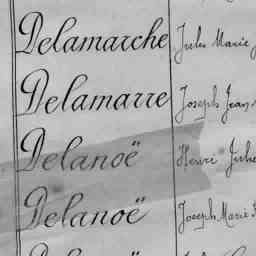 Delamarche Jules Marie
Delamarre Joseph Jean
Delanoë Henri Jules
Delanoë Joseph Marie